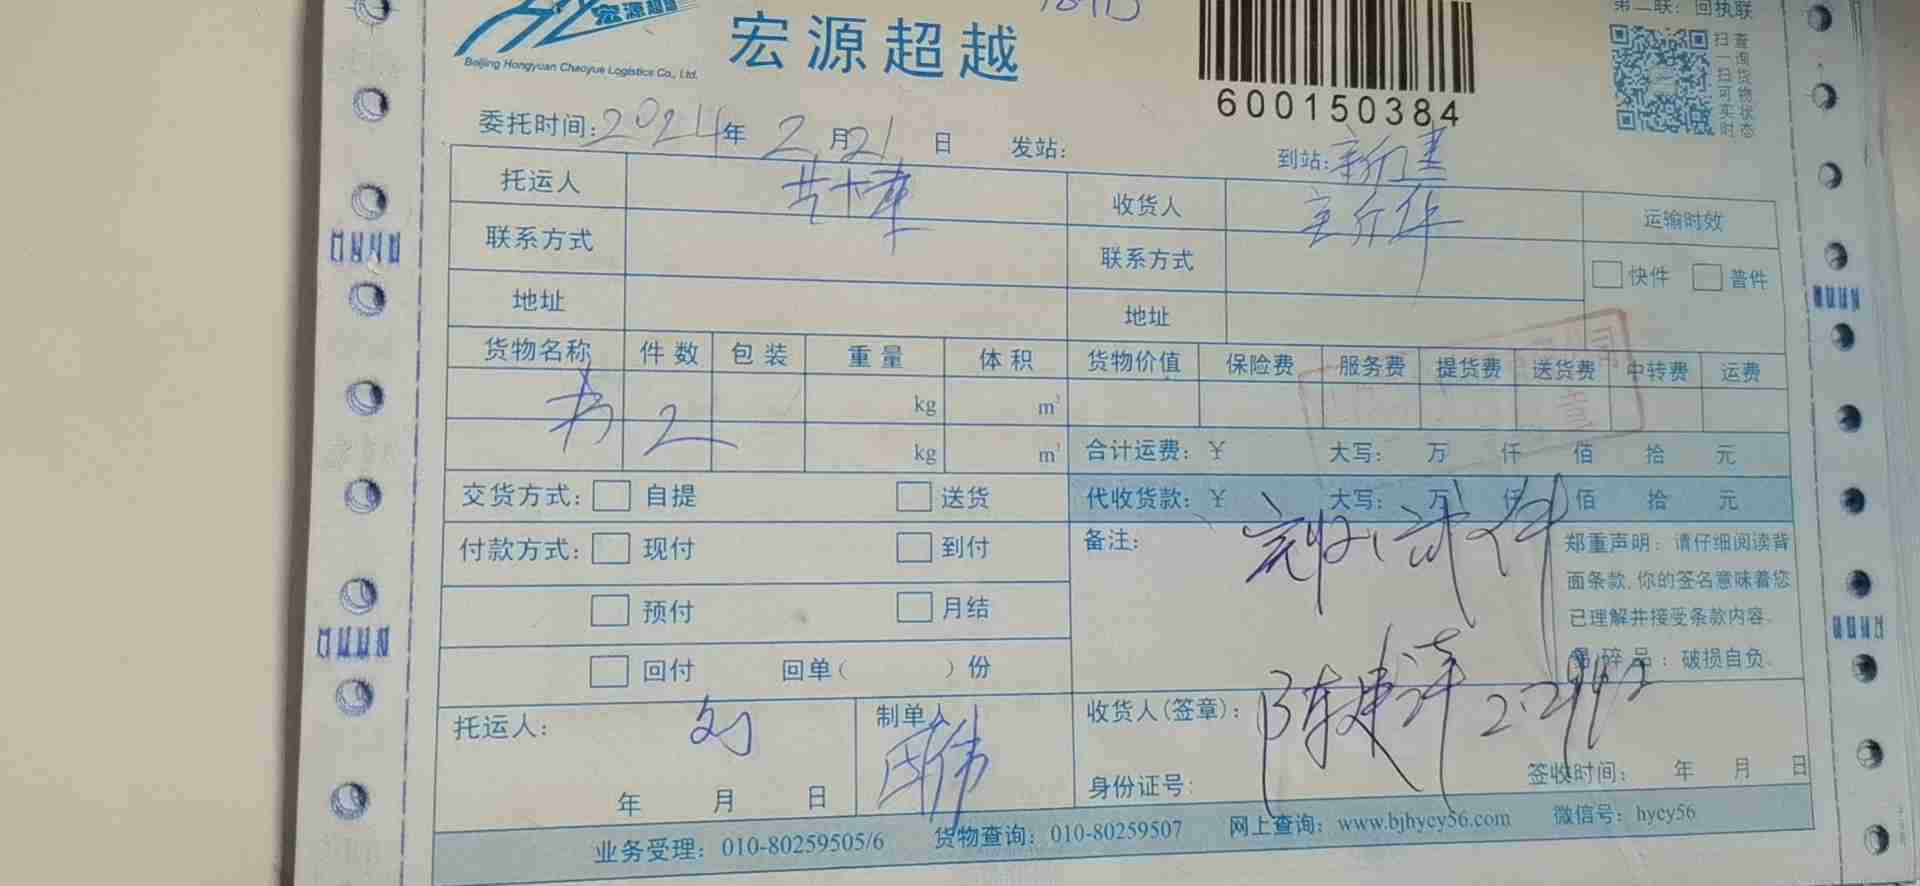 宏源超越
Beijing Hongyuan Chaoyue Logistics Co., Ltd.
宏源超越
600150384
第二联：回执联
扫一扫可实时
查询货物状态
委托时间：2024年 2月21日 发站： 到站：新疆
托运人 收货人 运输时效
联系方式 联系方式 快件 普件
地址 地址
货物名称 件数 包装 重量 体积 货物价值 保险费 服务费 提货费 送货费 中转费 运费
书 2 kg m³
kg m³ 合计运费：￥ 大写： 万 仟 佰 拾 元
交货方式： 自提 送货 代收货款：￥ 大写： 万 仟 佰 拾 元
付款方式： 现付 到付 备注： 郑重声明：请仔细阅读背
面条款,你的签名意味着您
预付 月结 已理解并接受条款内容。
回付 回单（ ）份 易碎品：破损自负。
托运人： 刘 制单人 收货人(签章)： 陈建
年 月 日 身份证号： 签收时间： 年 月 日
业务受理：010-80259505/6 货物查询：010-80259507 网上查询：www.bjhycy56.com 微信号：hycy56